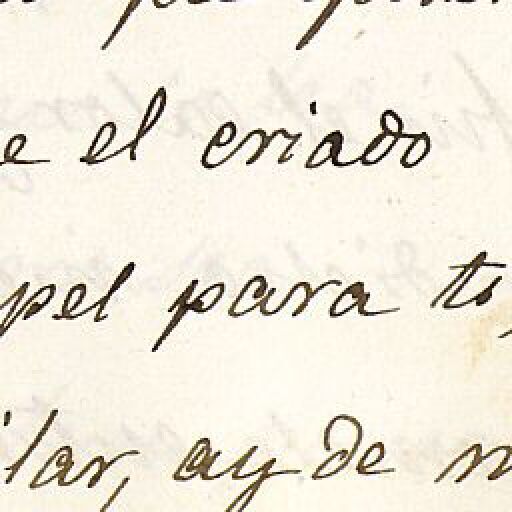 e el criado
pel para to
ilar, ay de m